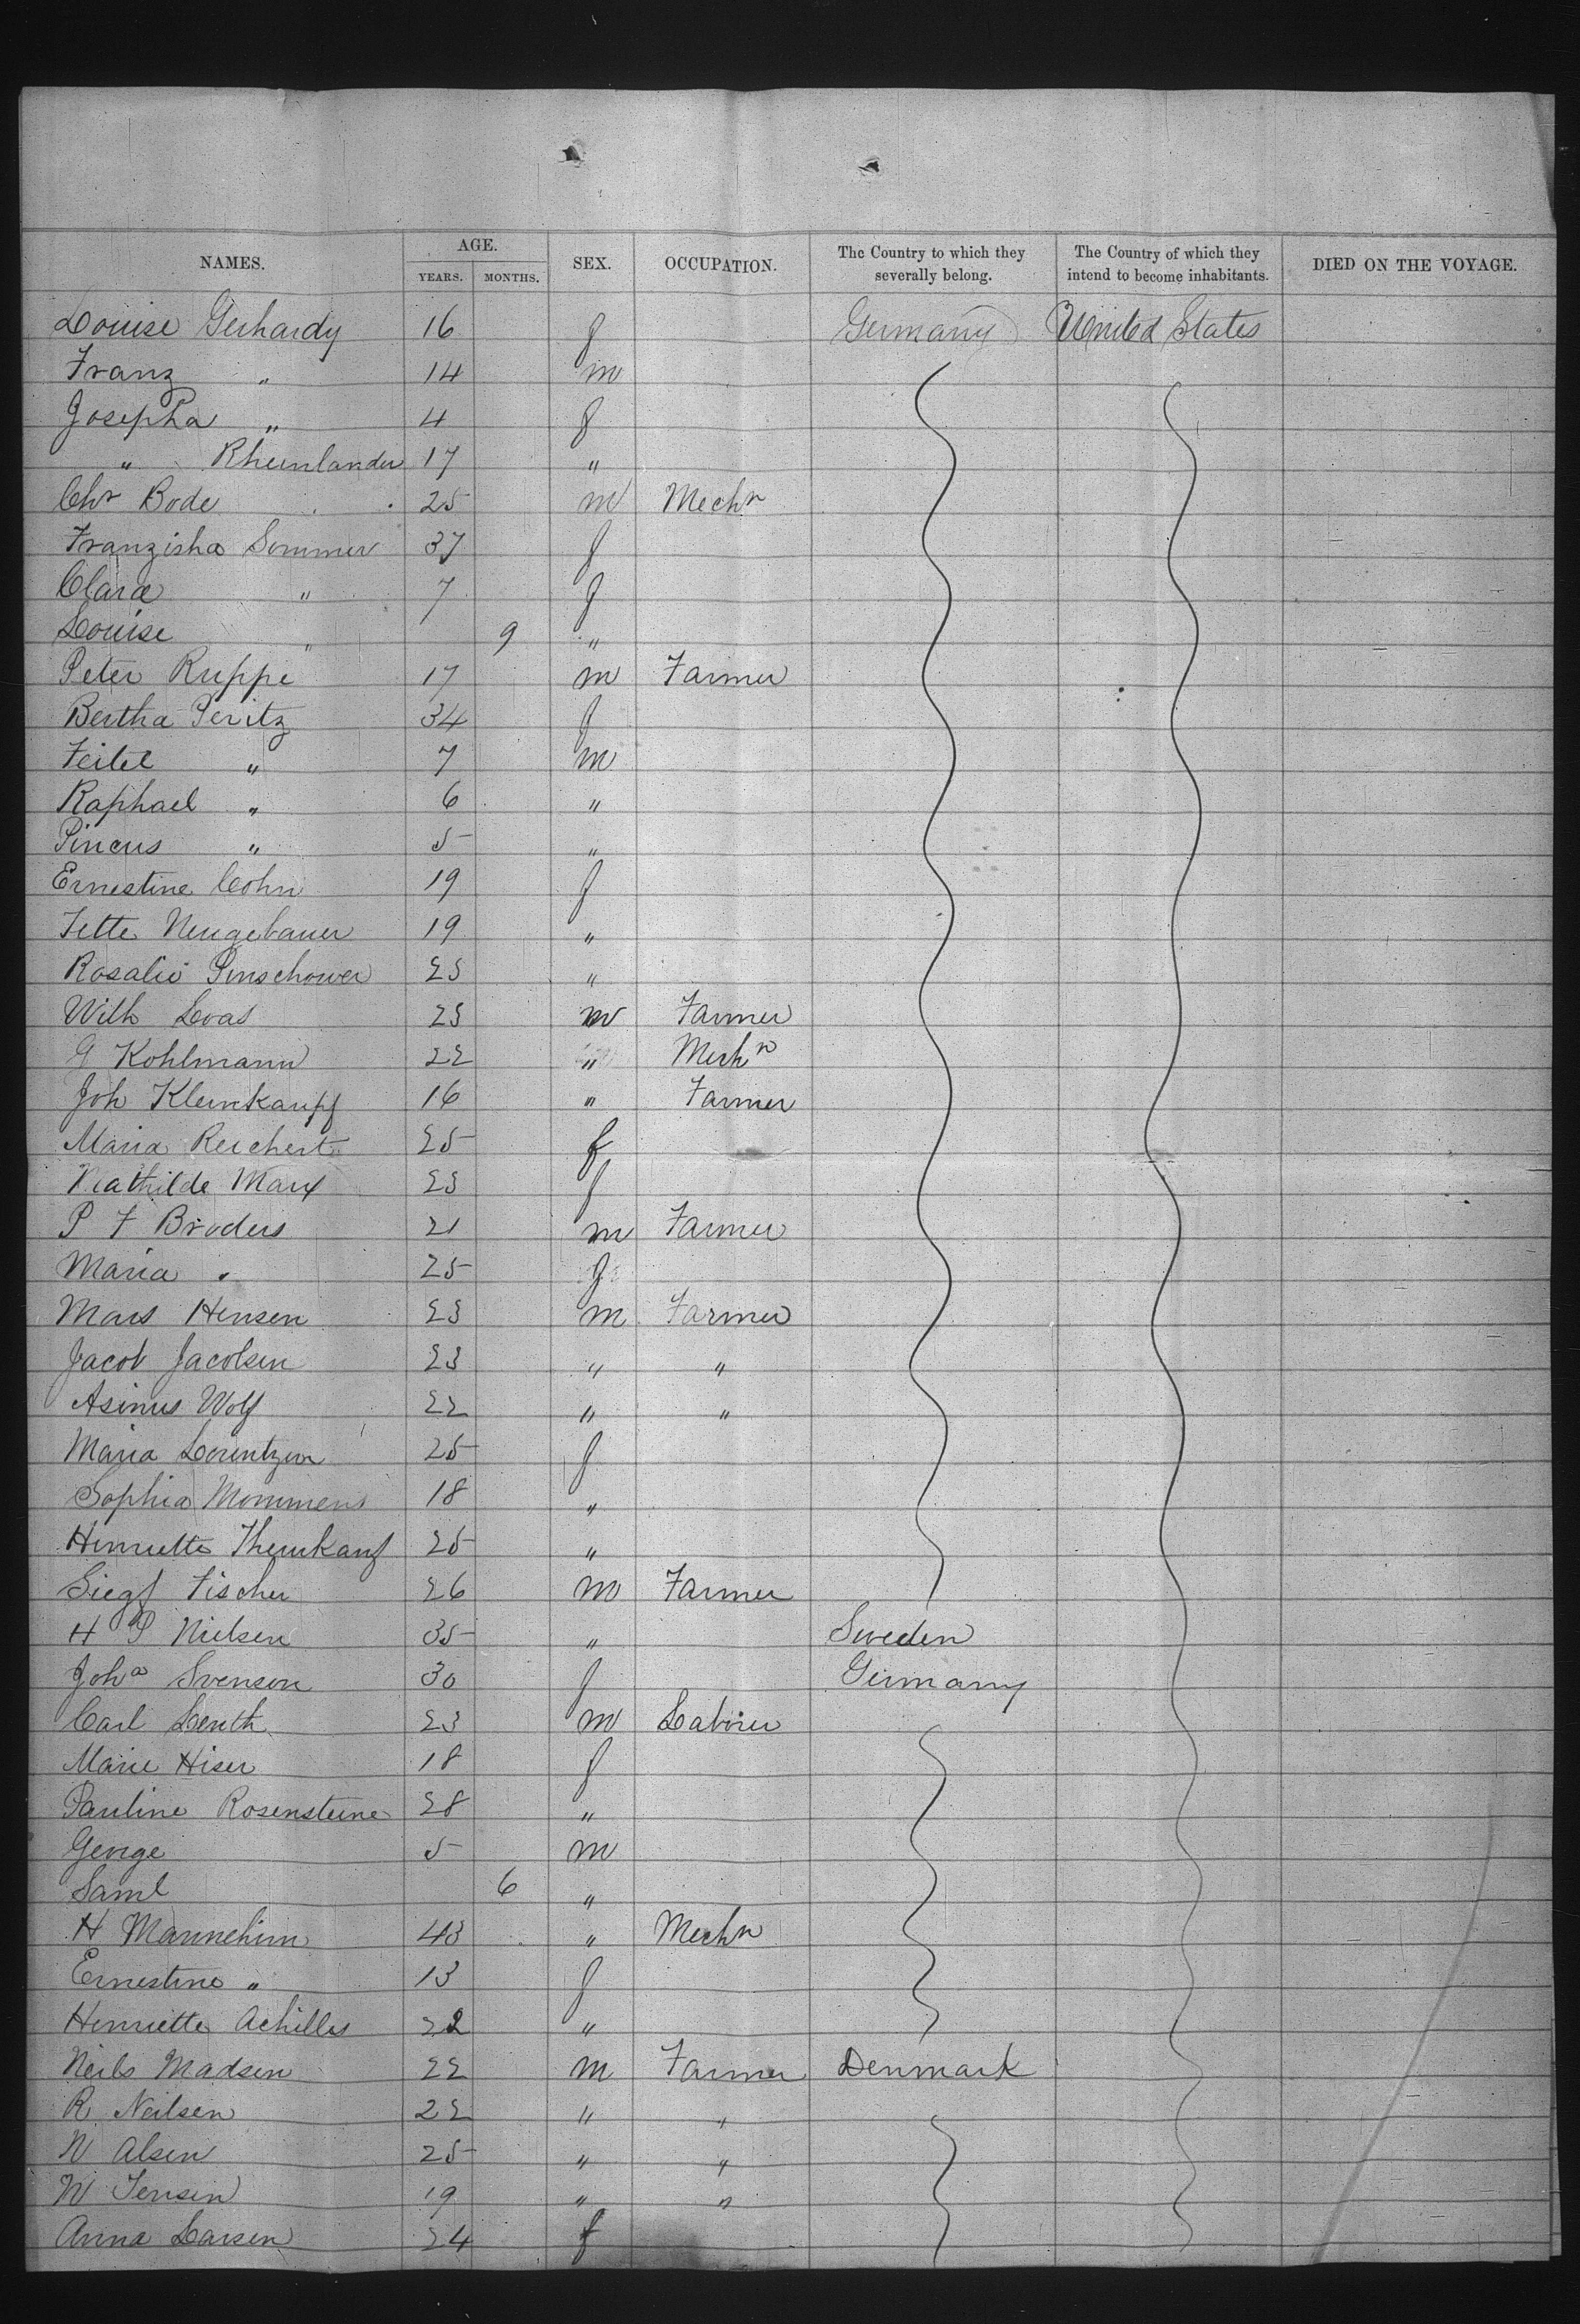 NAMES. AGE. SEX. OCCUPATION. The Country to which they severally belong. The Country of which they intend to become inhabitants. DIED ON THE VOYAGE.
YEARS. MONTHS.
Louise Gerhardy 16 f Germany United States
Franz " 14 m
Josepha " 4 f
" Rheinlander 17 "
Chr Bode 25 m Mechn
Franziska Sommer 37 f
Clara " 7 f
Louise " 9 "
Peter Ruppe 17 m Farmer
Bertha Peritz 34 f
Feitel " 7 m
Raphael " 6 "
Pincus " 5 "
Ernestine Cohn 19 f
Jette Neugebauer 19 "
Rosalie Pinschower 23 "
Wilh Loas 23 m Farmer
G Kohlmann 22 " Mechn
Joh Kleinkauff 16 " Farmer
Maria Reichert 25 f
Mathilde Marx 23 f
P F Broders 21 m Farmer
Maria " 25 f
Mars Hensen 23 m Farmer
Jacob Jacobsen 23 " "
Asinus Wolf 22 " "
Maria Lorentzen 25 f
Sophia Mommens 18 "
Henriette 25 "
Siegf Fischer 26 m Farmer
H P Nielsen 35 " Sweden
Joha Svenson 30 f Germany
Carl Lenth 23 m Laborer
Marie Hiser 18 f
Pauline Rosensteine 28 "
George 5 m
Saml 6 "
H Mannehim 43 " Mechn
Ernestine " 13 f
Henriette Achilles 22 "
Neils Madsen 22 m Farmer Denmark
R Neilsen 22 " "
N Alsen 25 " "
N Jensen 19 " "
Anna Larsen 24 f